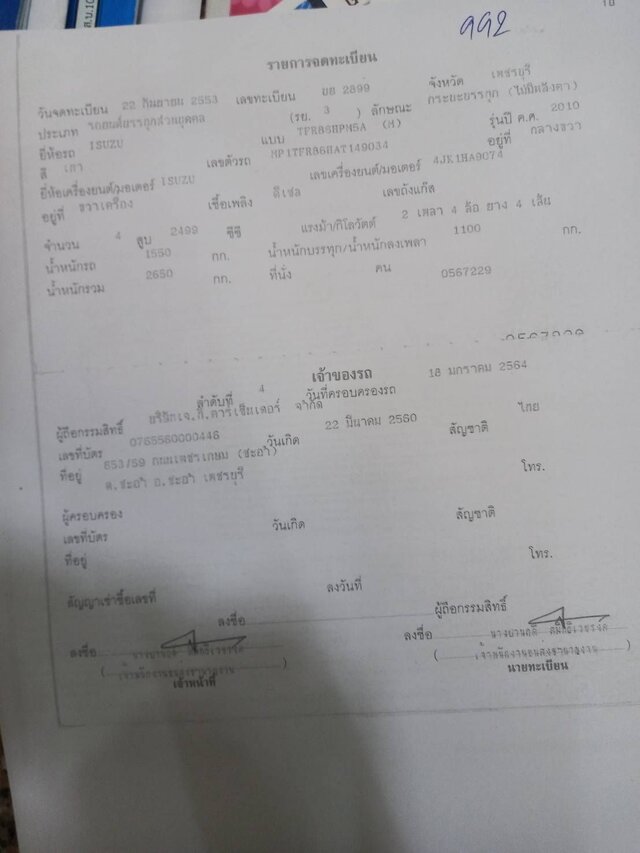 992
รายการจดทะเบียน
วันจดทะเบียน 22 กันยายน 2553 เลขทะเบียน 2899 จังหวัด เพชรบุรี
ประเภท รถยนต์บรรทุกส่วนบุคคล (รย. 3 ) ลักษณะ กระบะบรรทุก (ไม่มีหลังคา)
ยี่ห้อรถ ISUZU แบบ TFR86HPM5A (M) รุ่นปี ค.ศ. 2010
สี เทา เลขตัวรถ MP1TFR86HAT149034 อยู่ที่ กลางขวา
ยี่ห้อเครื่องยนต์/มอเตอร์ ISUZU เลขเครื่องยนต์/มอเตอร์ 4JK1HA9C74
อยู่ที่ ขวาเครื่อง เชื้อเพลิง ดีเซล เลขถังแก๊ส
จำนวน 4 สูบ 2499 ซีซี แรงม้า/กิโลวัตต์ 2 เพลา 4 ล้อ ยาง 4 เส้น
น้ำหนักรถ 1550 กก. น้ำหนักบรรทุก/น้ำหนักลงเพลา 1100 กก.
น้ำหนักรวม 2650 กก. ที่นั่ง คน 0567229
เจ้าของรถ
ลำดับที่ 4 วันที่ครอบครองรถ 18 มกราคม 2564
ผู้ถือกรรมสิทธิ์ จำกัด
เลขที่บัตร 0765560000446 วันเกิด 22 มีนาคม 2560 สัญชาติ ไทย
ที่อยู่ 653/59 ถนนเพชรเกษม (ชะอำ)
ต.ชะอำ อ.ชะอำ เพชรบุรี โทร.
ผู้ครอบครอง
เลขที่บัตร วันเกิด สัญชาติ
ที่อยู่ โทร.
สัญญาเช่าซื้อเลขที่ ลงวันที่ ผู้ถือกรรมสิทธิ์
ลงชื่อ
ลงชื่อ ลงชื่อ
เจ้าหน้าที่ นายทะเบียน